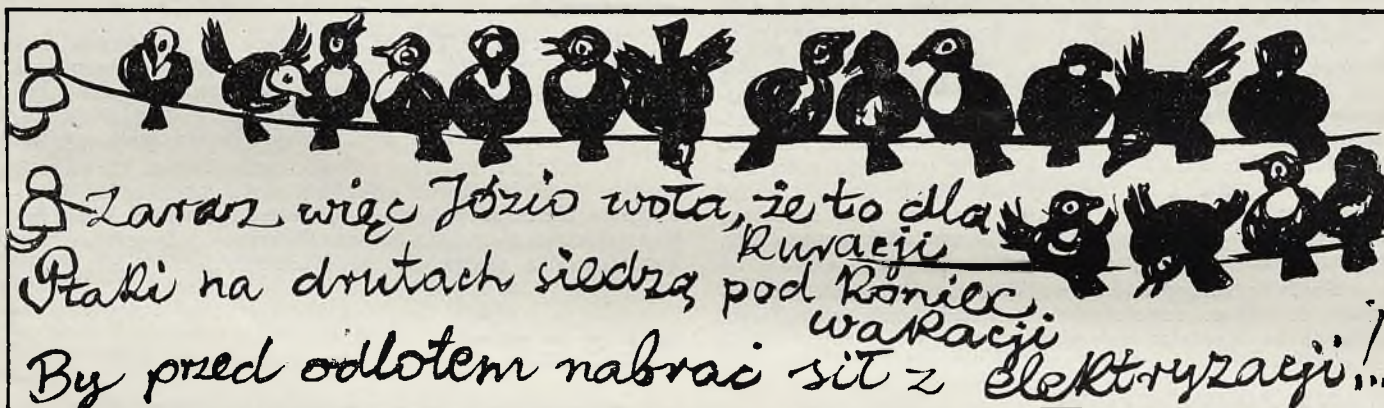 Zaraz więc Józio woła, że to dla
kuracji
Ptaki na drutach siedzą pod koniec
wakacji
By przed odlotem nabrać sił z elektryzacji!...